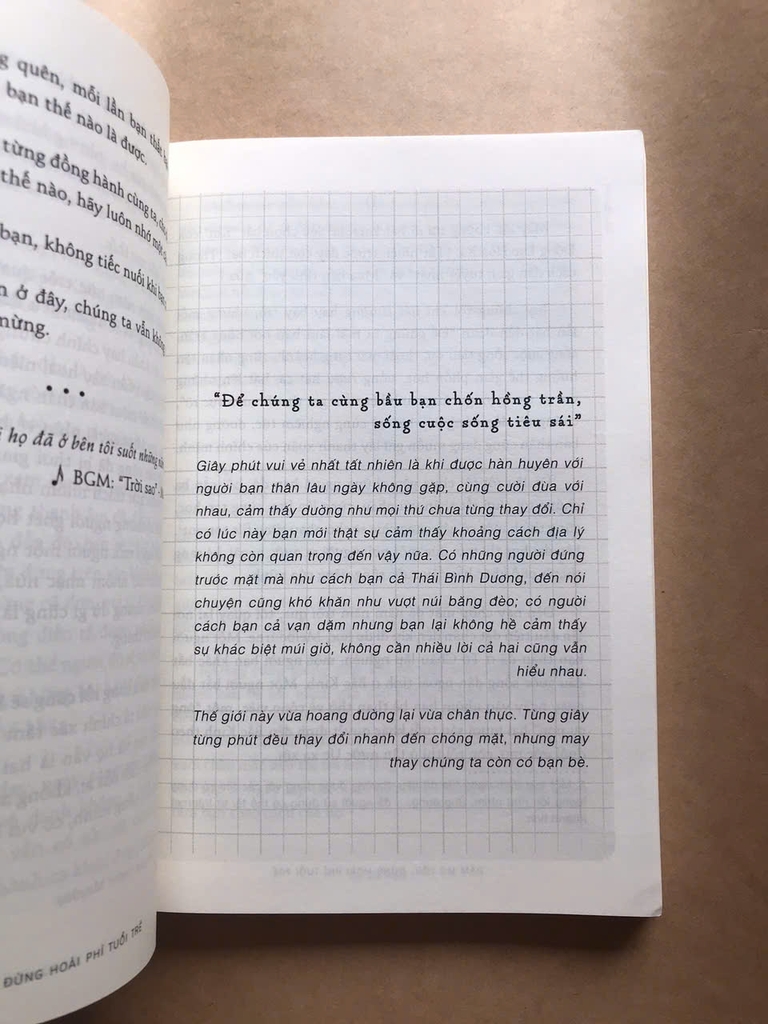 quên, mỗi lần bạn thất
bạn thế nào là được.
từng đồng hành cùng ta,
thế nào, hãy luôn nhớ một
bạn, không tiếc nuối khi
ở đây, chúng ta vẫn không
mừng.
• • •
họ đã ở bên tôi suốt những
♪ BGM: “Trời sao” -
ĐỪNG HOÀI PHÍ TUỔI TRẺ
“Để chúng ta cùng bầu bạn chốn hồng trần,
sống cuộc sống tiêu sái”
Giây phút vui vẻ nhất tất nhiên là khi được hàn huyên với
người bạn thân lâu ngày không gặp, cùng cười đùa với
nhau, cảm thấy dường như mọi thứ chưa từng thay đổi. Chỉ
có lúc này bạn mới thật sự cảm thấy khoảng cách địa lý
không còn quan trọng đến vậy nữa. Có những người đứng
trước mặt mà như cách bạn cả Thái Bình Dương, đến nói
chuyện cũng khó khăn như vượt núi băng đèo; có người
cách bạn cả vạn dặm nhưng bạn lại không hề cảm thấy
sự khác biệt múi giờ, không cần nhiều lời cả hai cũng vẫn
hiểu nhau.
Thế giới này vừa hoang đường lại vừa chân thực. Từng giây
từng phút đều thay đổi nhanh đến chóng mặt, nhưng may
thay chúng ta còn có bạn bè.